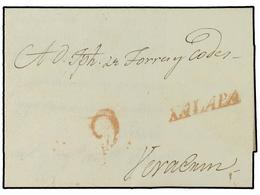 A d. Jph. de Torres y Codes
XALAPA
Veracruz